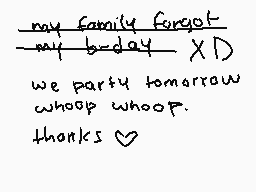 my family forgot
my b-day XD
we party tomorrow
whoop whoop.
thanks ♡